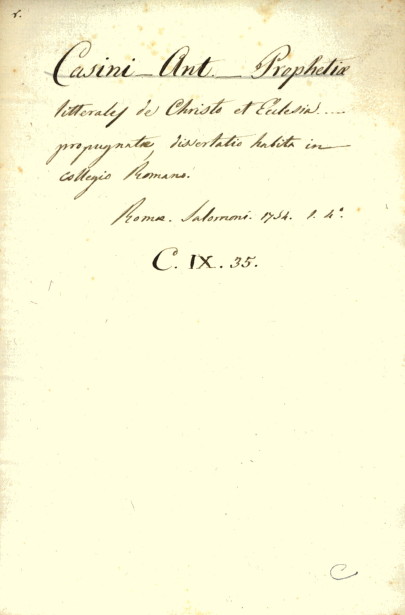 Casini Ant. Prophetiæ
litterales de Christo et Ecclesia.....
propugnatæ, dissertatio habita in
collegio Romano.
Romæ. Salomoni. 1754. 1. 4º.
C. IX. 35.
C